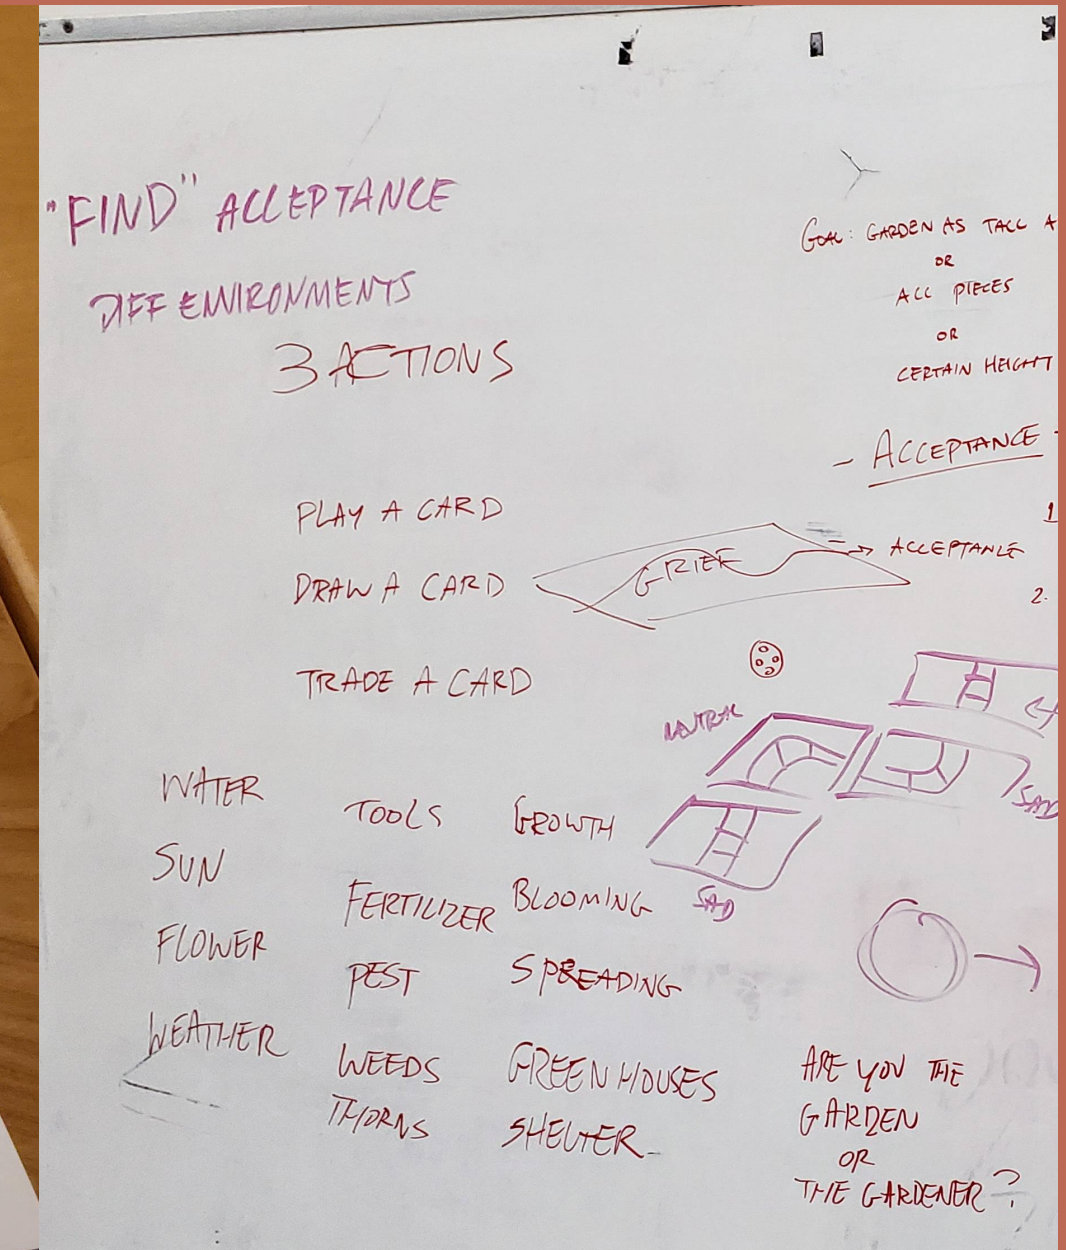 "FIND" ACCEPTANCE
DIFF ENVIRONMENTS
3 ACTIONS
PLAY A CARD
DRAW A CARD
TRADE A CARD
WATER
SUN
FLOWER
WEATHER
TOOLS
FERTILIZER
PEST
WEEDS
THORNS
GROWTH
BLOOMING
SPREADING
GREENHOUSES
SHELTER
GOAL: GARDEN AS TALL A
OR
ALL PIECES
OR
CERTAIN HEIGHT
- ACCEPTANCE -
1
GRIEF
ACCEPTANCE
2.
NEUTRAL
SAD
SAD
ARE YOU THE
GARDEN
OR
THE GARDENER?